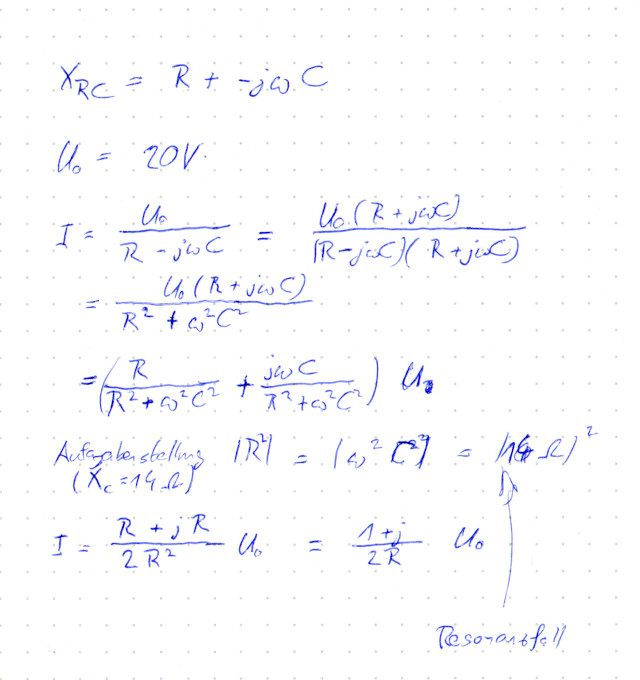 X_RC = R + -jωC
U₀ = 20V.
I = U₀ / (R - jωC) = U₀(R + jωC) / (R - jωC)(R + jωC)
= U₀(R + jωC) / (R² + ω²C²)
= (R / (R² + ω²C²) + jωC / (R² + ω²C²)) U₀
Aufgabenstellung |R²| = |ω²C²| = (14 Ω)²
(X_c = 14 Ω)
I = (R + jR) / 2R² U₀ = (1 + j) / 2R U₀
Resonanzfall